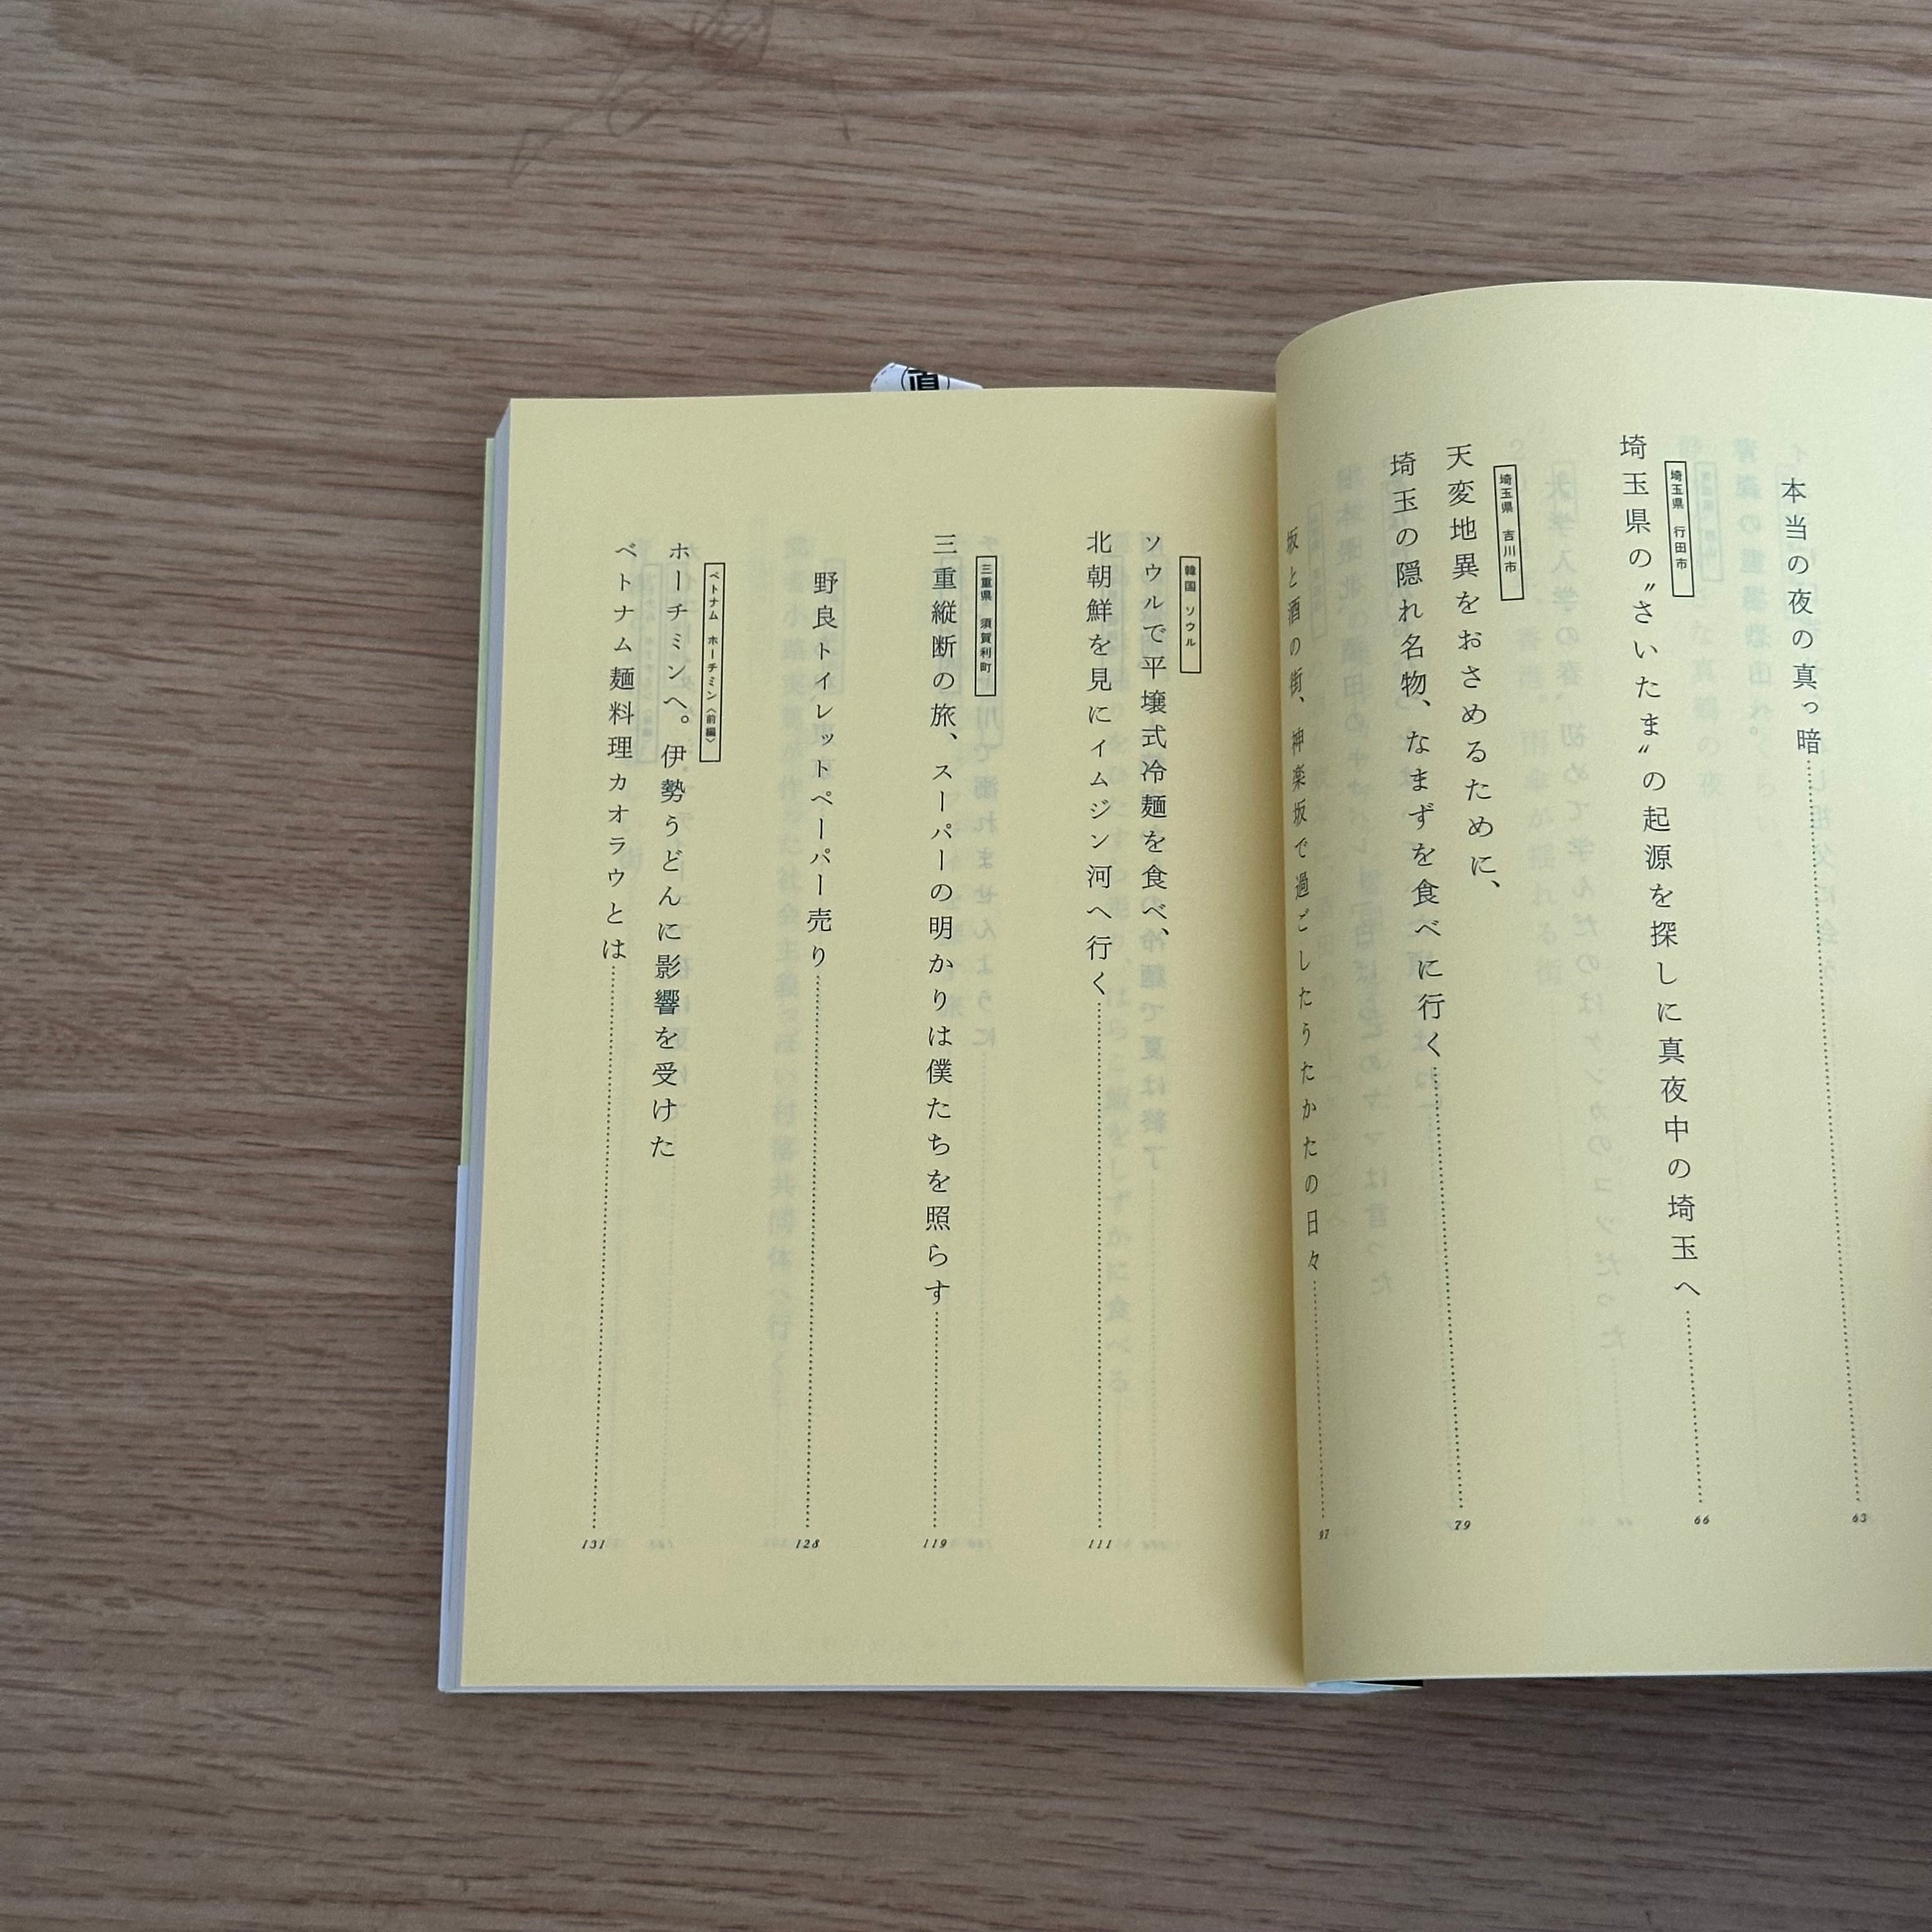 直
本当の夜の真っ暗
63
埼玉県 行田市
埼玉県の〝さいたま〟の起源を探しに真夜中の埼玉へ
66
埼玉県 吉川市
天変地異をおさめるために、
埼玉の隠れ名物、なまずを食べに行く
79
坂と酒の街、神楽坂で過ごしたうたかたの日々
97
韓国 ソウル
ソウルで平壌式冷麺を食べ、
北朝鮮を見にイムジン河へ行く
111
三重県 須賀利町
三重縦断の旅、スーパーの明かりは僕たちを照らす
119
野良トイレットペーパー売り
128
ベトナム ホーチミン〈前編〉
ホーチミンへ。伊勢うどんに影響を受けた
ベトナム麺料理カオラウとは
131